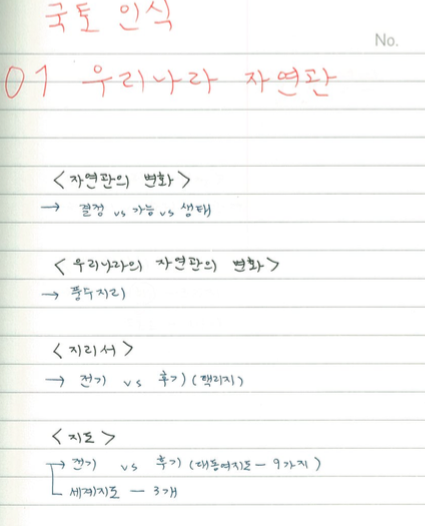 국토 인식
No.
01 우리나라 자연관
<자연관의 변화>
→ 결정 vs 가능 vs 생태
<우리나라의 자연관의 변화>
→ 풍수지리
<지리서>
→ 전기 vs 후기 (택리지)
<지도>
→ 전기 vs 후기 (대동여지도 - 9가지)
세계지도 - 3개